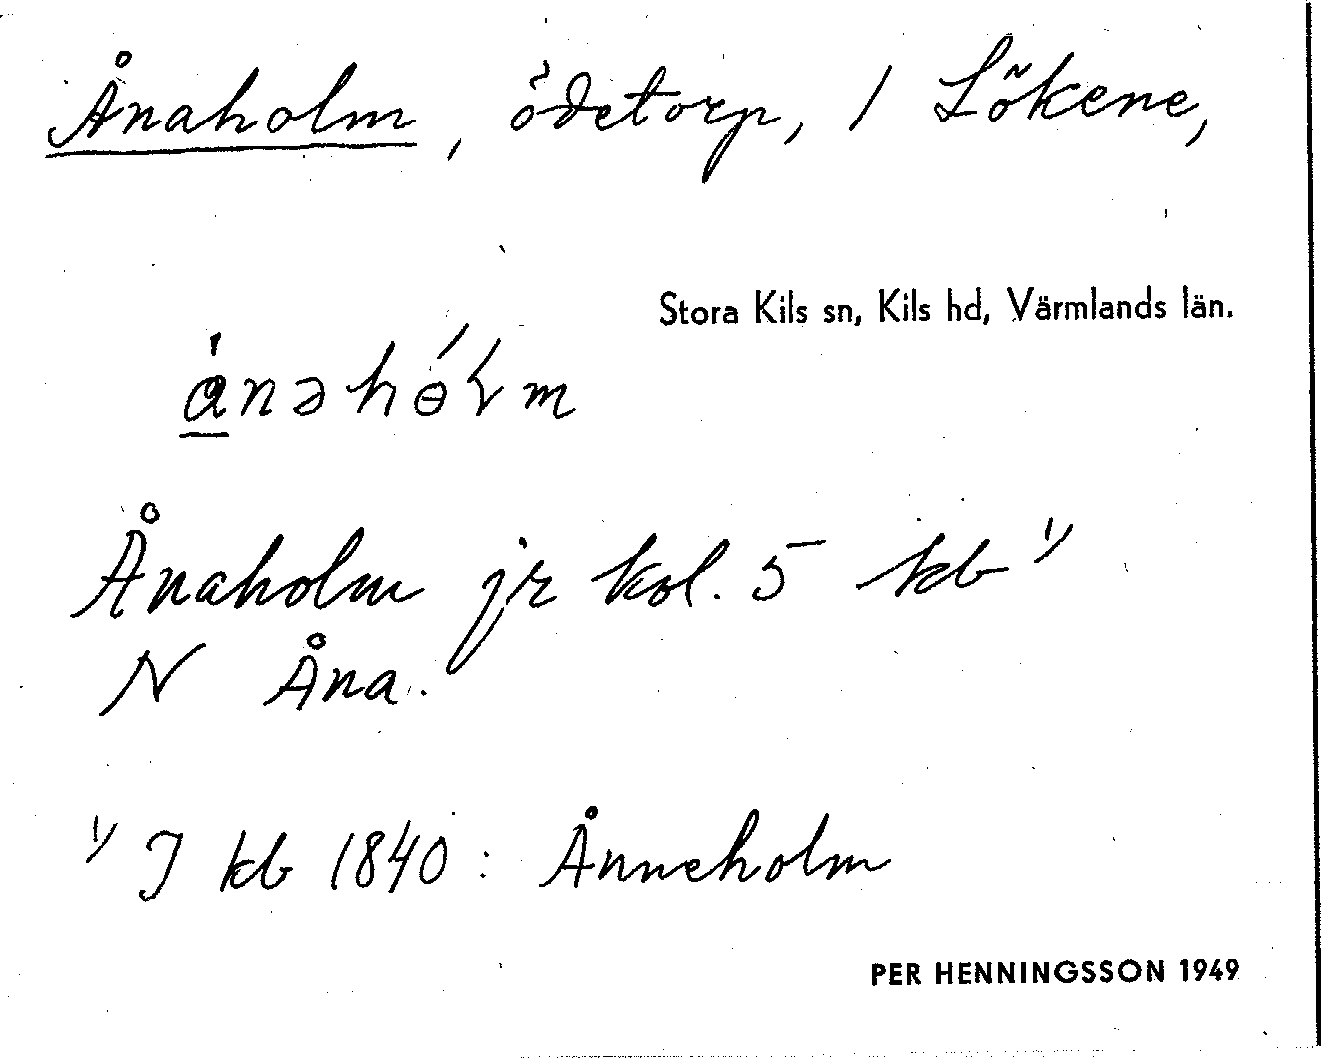 Ånaholm, ödetorp, / Lökene,
Stora Kils sn, Kils hd, Värmlands län.
Ånaholm jr kol. 5 kb 1/
N Åna.
1/ I kb 1840: Ånneholm
PER HENNINGSSON 1949